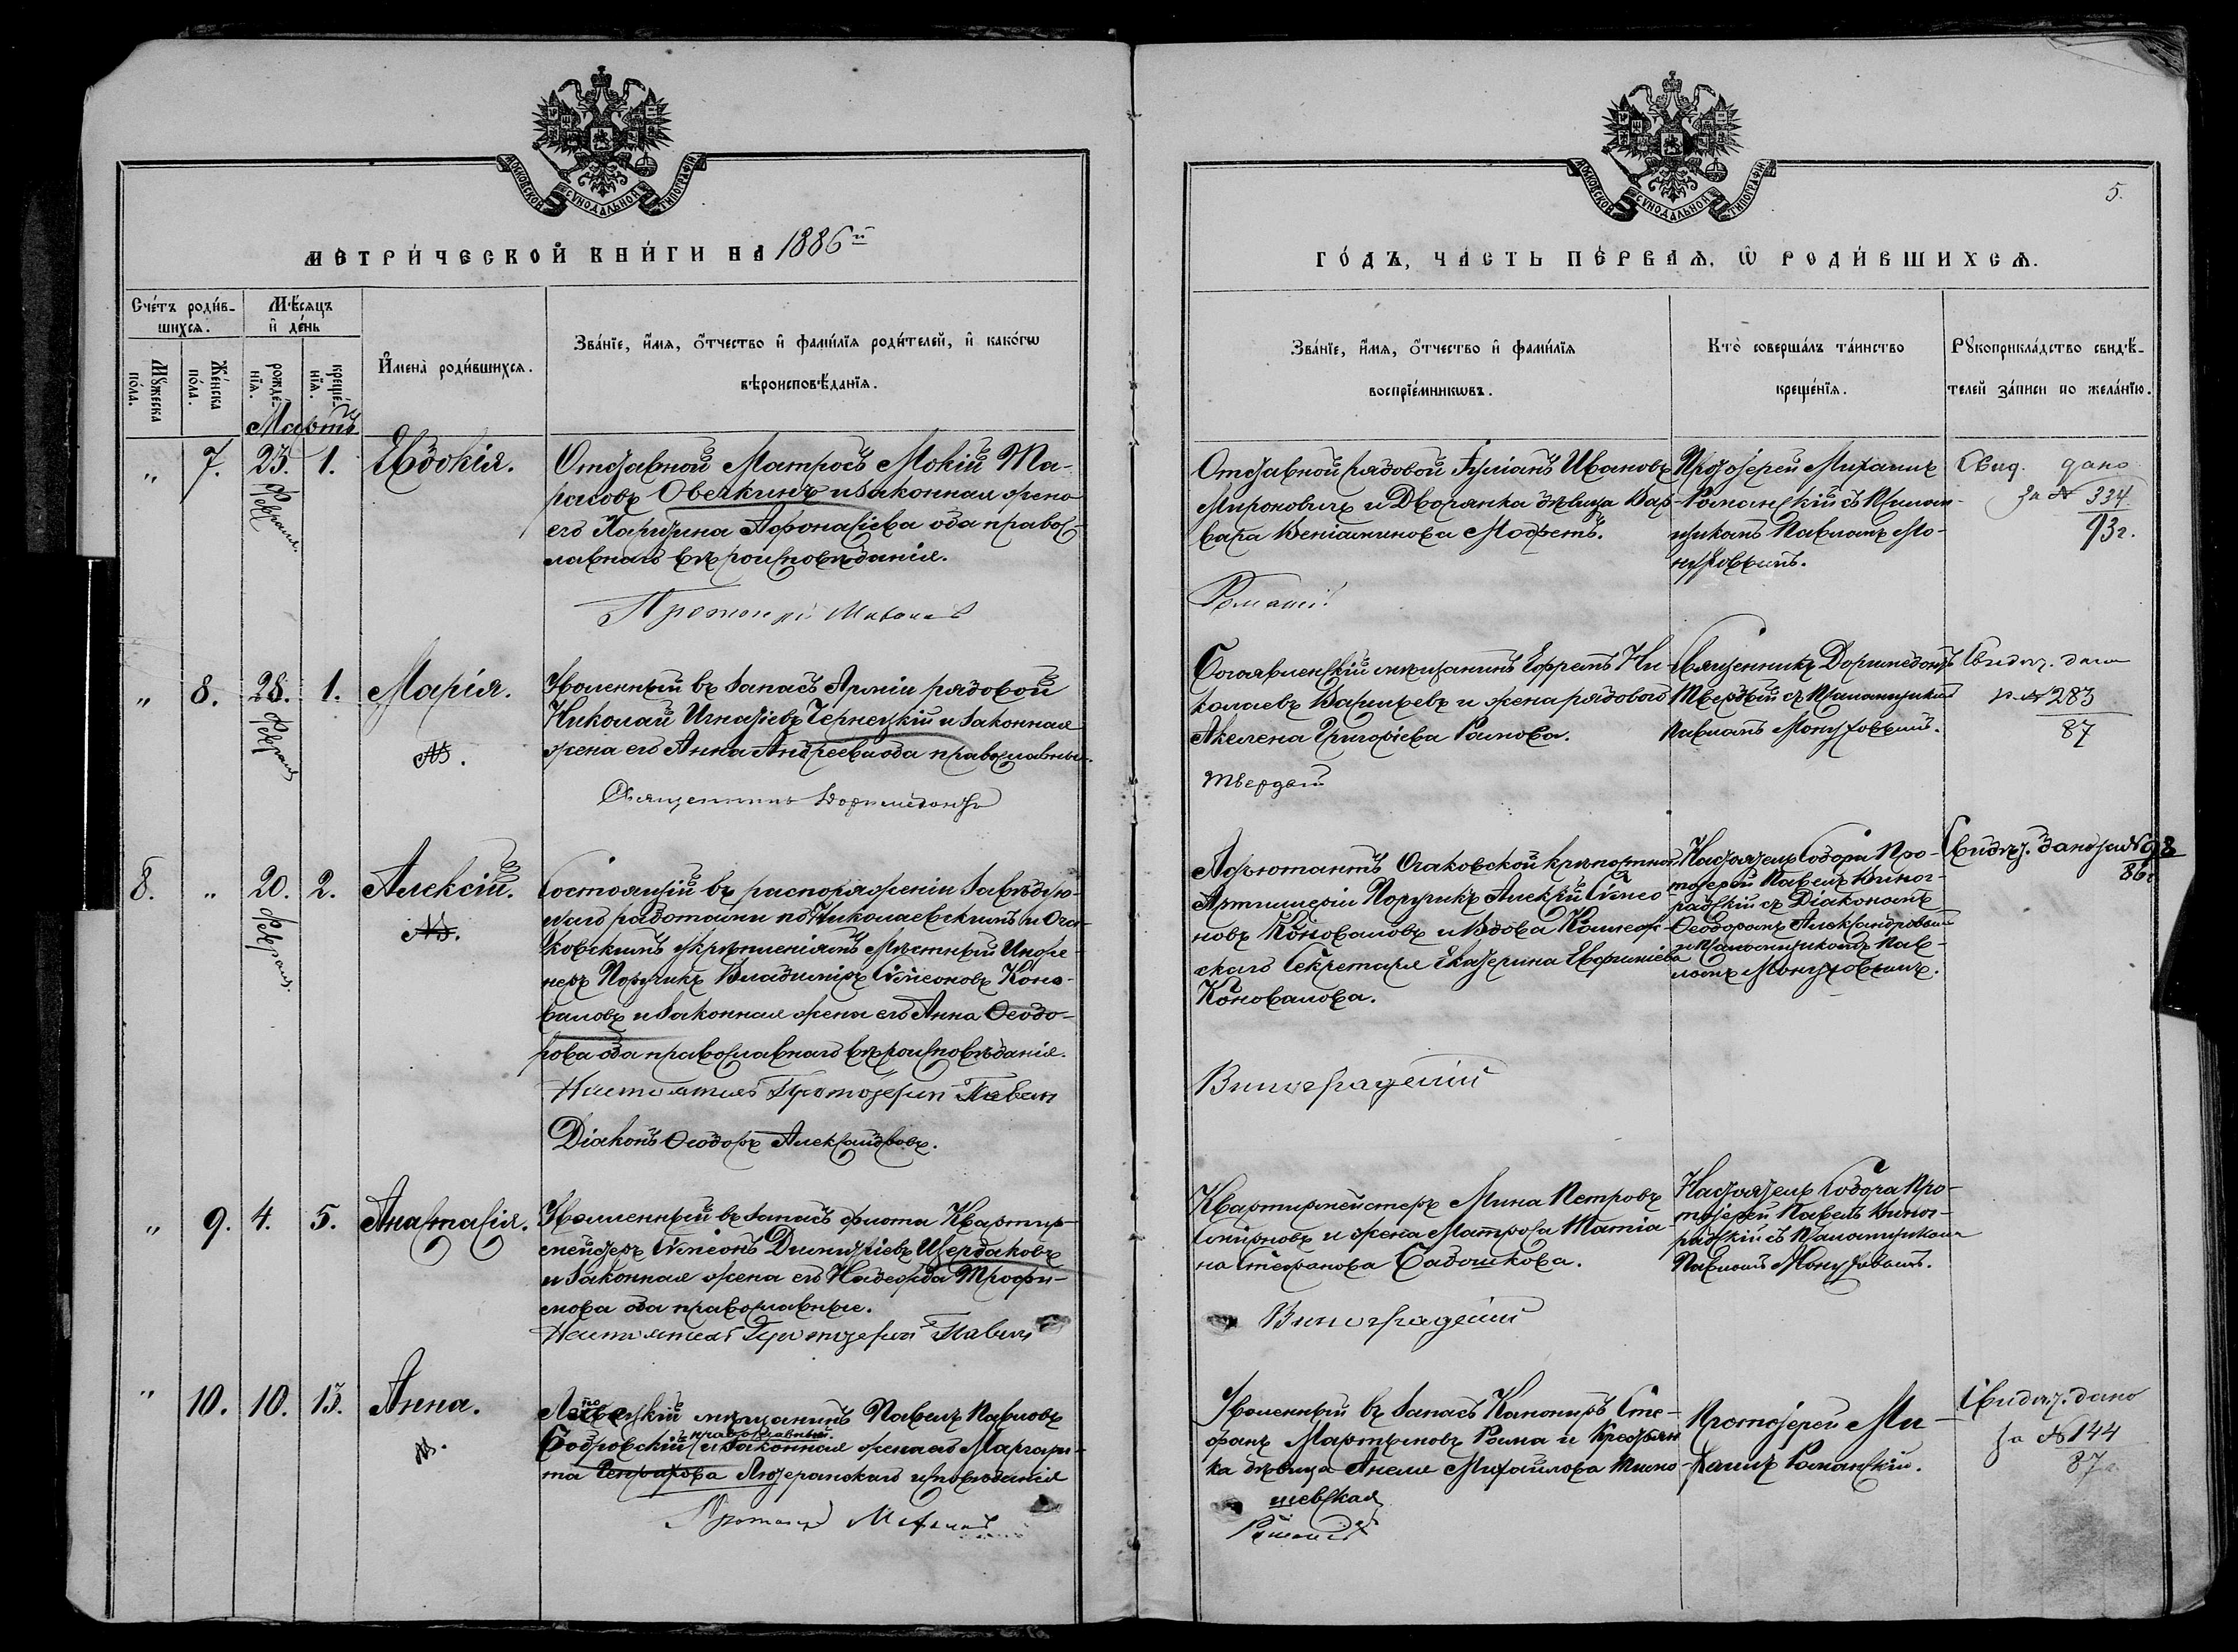 МОСКОВСКОЙ СѴНОДАЛЬНОЙ ТИПОГРАФІИ
МЕТРИ́ЧЕСКОЙ КНИ́ГИ НА 1886й
Счéтъ роди́в-
шихся.
Мѣ́сяцъ
и҆ де́нь
Мꙋ́жеска
по́ла.
Же́нска
по́ла.
рожде́-
нїя.
креще́-
нїя.
И҆мена̀ роди́вшихся.
Зва́нїе, и҆́мя, ѻ҆́тчество и҆ фами́лїя роди́телей, и҆ како́гѡ
вѣроисповѣ́данїя.
Мартъ
„ 7. 23. Февраля. 1. Евдокія.
Отставной Матросъ Мокій Та-
расовъ Овечкинъ и законная жена
его Харитина Афонасіева оба правос-
лавнаго вѣроисповѣданія.
Протоіерей Михаилъ
„ 8. 28. Февраля 1. Марія.
Уволенный въ запасъ Арміи рядовой
Николай Игнатіевъ Чернецкій и законная
жена его Анна Андреева оба православные.
Священникъ Доримедонтъ
8. „ 20. Февраля. 2. Алексій.
Состоящій въ распоряженіи Завѣдую-
щаго работами по Николаевскимъ и Оча-
ковскимъ укрѣпленіямъ Мѣстный Инже-
неръ Поручикъ Владиміръ Сѵмеоновъ Коно-
валовъ и законная жена его Анна Ѳеодо-
рова оба православнаго вѣроисповѣданія.
Настоятель Протоіерей Павелъ
Діаконъ Ѳеодоръ Александровъ.
„ 9. 4. 5. Анастасія.
Уволенный въ запасъ флота Квартир-
мейстеръ Сѵмеонъ Димитріевъ Щердаковъ
и законная жена его Надежда Трофи-
мова оба православные.
Настоятель Протоіерей Павелъ
„ 10. 10. 13. Анна.
мѣщанинъ Павелъ Павловъ
Бобровскій православный. и законная жена его Маргари-
та Лютеранскаго исповѣданія
Протоіерей Михаилъ
МОСКОВСКОЙ СѴНОДАЛЬНОЙ ТИПОГРАФІИ
5.
ГО́ДЪ, ЧА́СТЬ ПЕ́РВАЯ, Ѡ҆ РОДИ́ВШИХСЯ.
Зва́нїе, и҆́мя, ѻ҆́тчество и҆ фами́лїя
воспрїе́мникѡвъ.
Кто̀ соверша́лъ та́инство
креще́нїя.
Рꙋкоприкла́дство свидѣ́-
телей за́писи по жела́нїю.
Отставной рядовой Іуліанъ Ивановъ
Мироновичъ и Дворянка дѣвица Вар-
вара Веніаминова Мофетъ.
Протоіерей Михаилъ
Романскій съ Псалом-
щикомъ Павломъ Мо-
нцховымъ.
Свид. дано
за № 334
93г.
Романскій
Богоявленскій мѣщанинъ Ефремъ Ни-
колаевъ Варичевъ и жена рядового
Акелена Григоріева Рыкова.
Священникъ Доримедонтъ
Твердый съ Псаломщикомъ
Павломъ
Свидѣт. дано
за № 283
87
Твердый
Адъютантъ Очаковской крѣпостной
Артиллеріи Поручикъ Алексѣй Сѵмео-
новъ Коноваловъ и Вдова Коллеж-
скаго Секретаря Екатерина Евфиміева
Коновалова.
Настоятель Собора Про-
тоіерей Павелъ Виног-
радскій съ Діакономъ
Ѳеодоромъ Александровымъ
и Псаломщикомъ Пав-
ломъ
Свидѣт. дано за № 98
86г
Виноградскій
Квартирмейстеръ Мина Петровъ
Смирновъ и жена Матроса Татіа-
на Стефанова Садошкова.
Настоятель Собора Про-
тоіерей Павелъ Виног-
радскій съ Псаломщикомъ
Павломъ
Виноградскій
Уволенный въ запасъ Канониръ Сте-
фанъ Мартыновъ Рома и крестьян-
ка дѣвица Анеля Михайлова Тимо-
шевская
Протоіерей Ми-
хаилъ Романскій.
Свидѣт. дано
за № 144
87г
Романскій